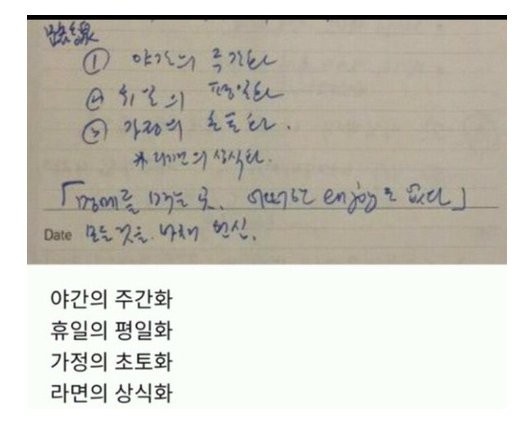 ① 야간의 주간화
② 휴일의 평일화
③ 가정의 초토화.
*라면의 상식화.
「명예를 먹는 곳. 어떠한 enjoy도 없다」
Date 모든 것을 바쳐 헌신.
야간의 주간화
휴일의 평일화
가정의 초토화
라면의 상식화